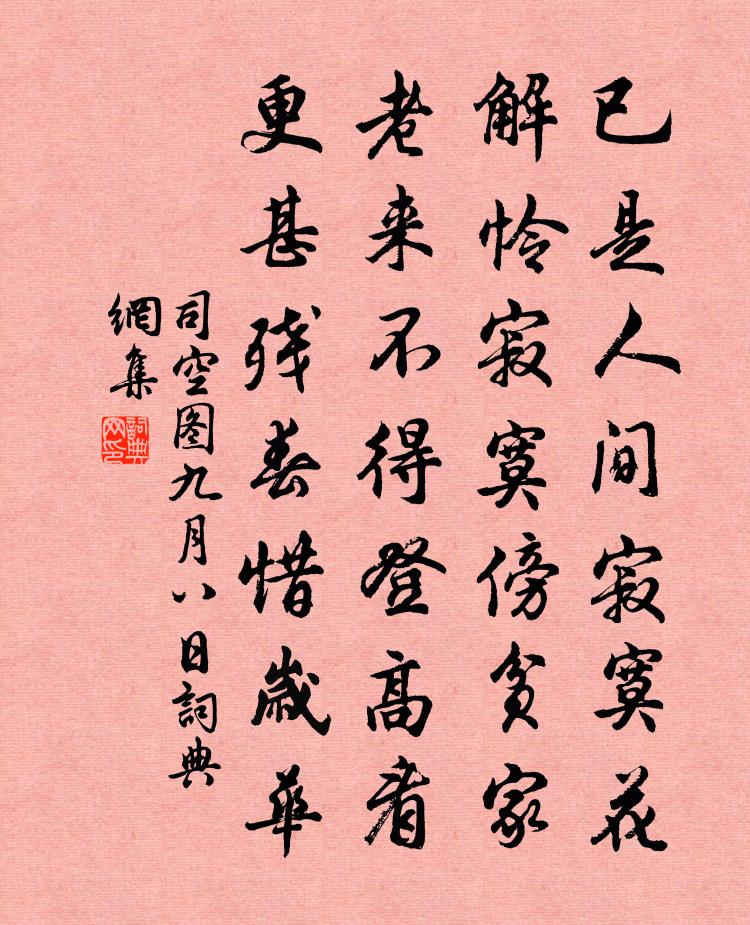 已是人间寂寞花
解怜寂寞傍贫家
老来不得登高看
更甚残春惜歲華
司空图九月八日詞典
網集
詞典网印